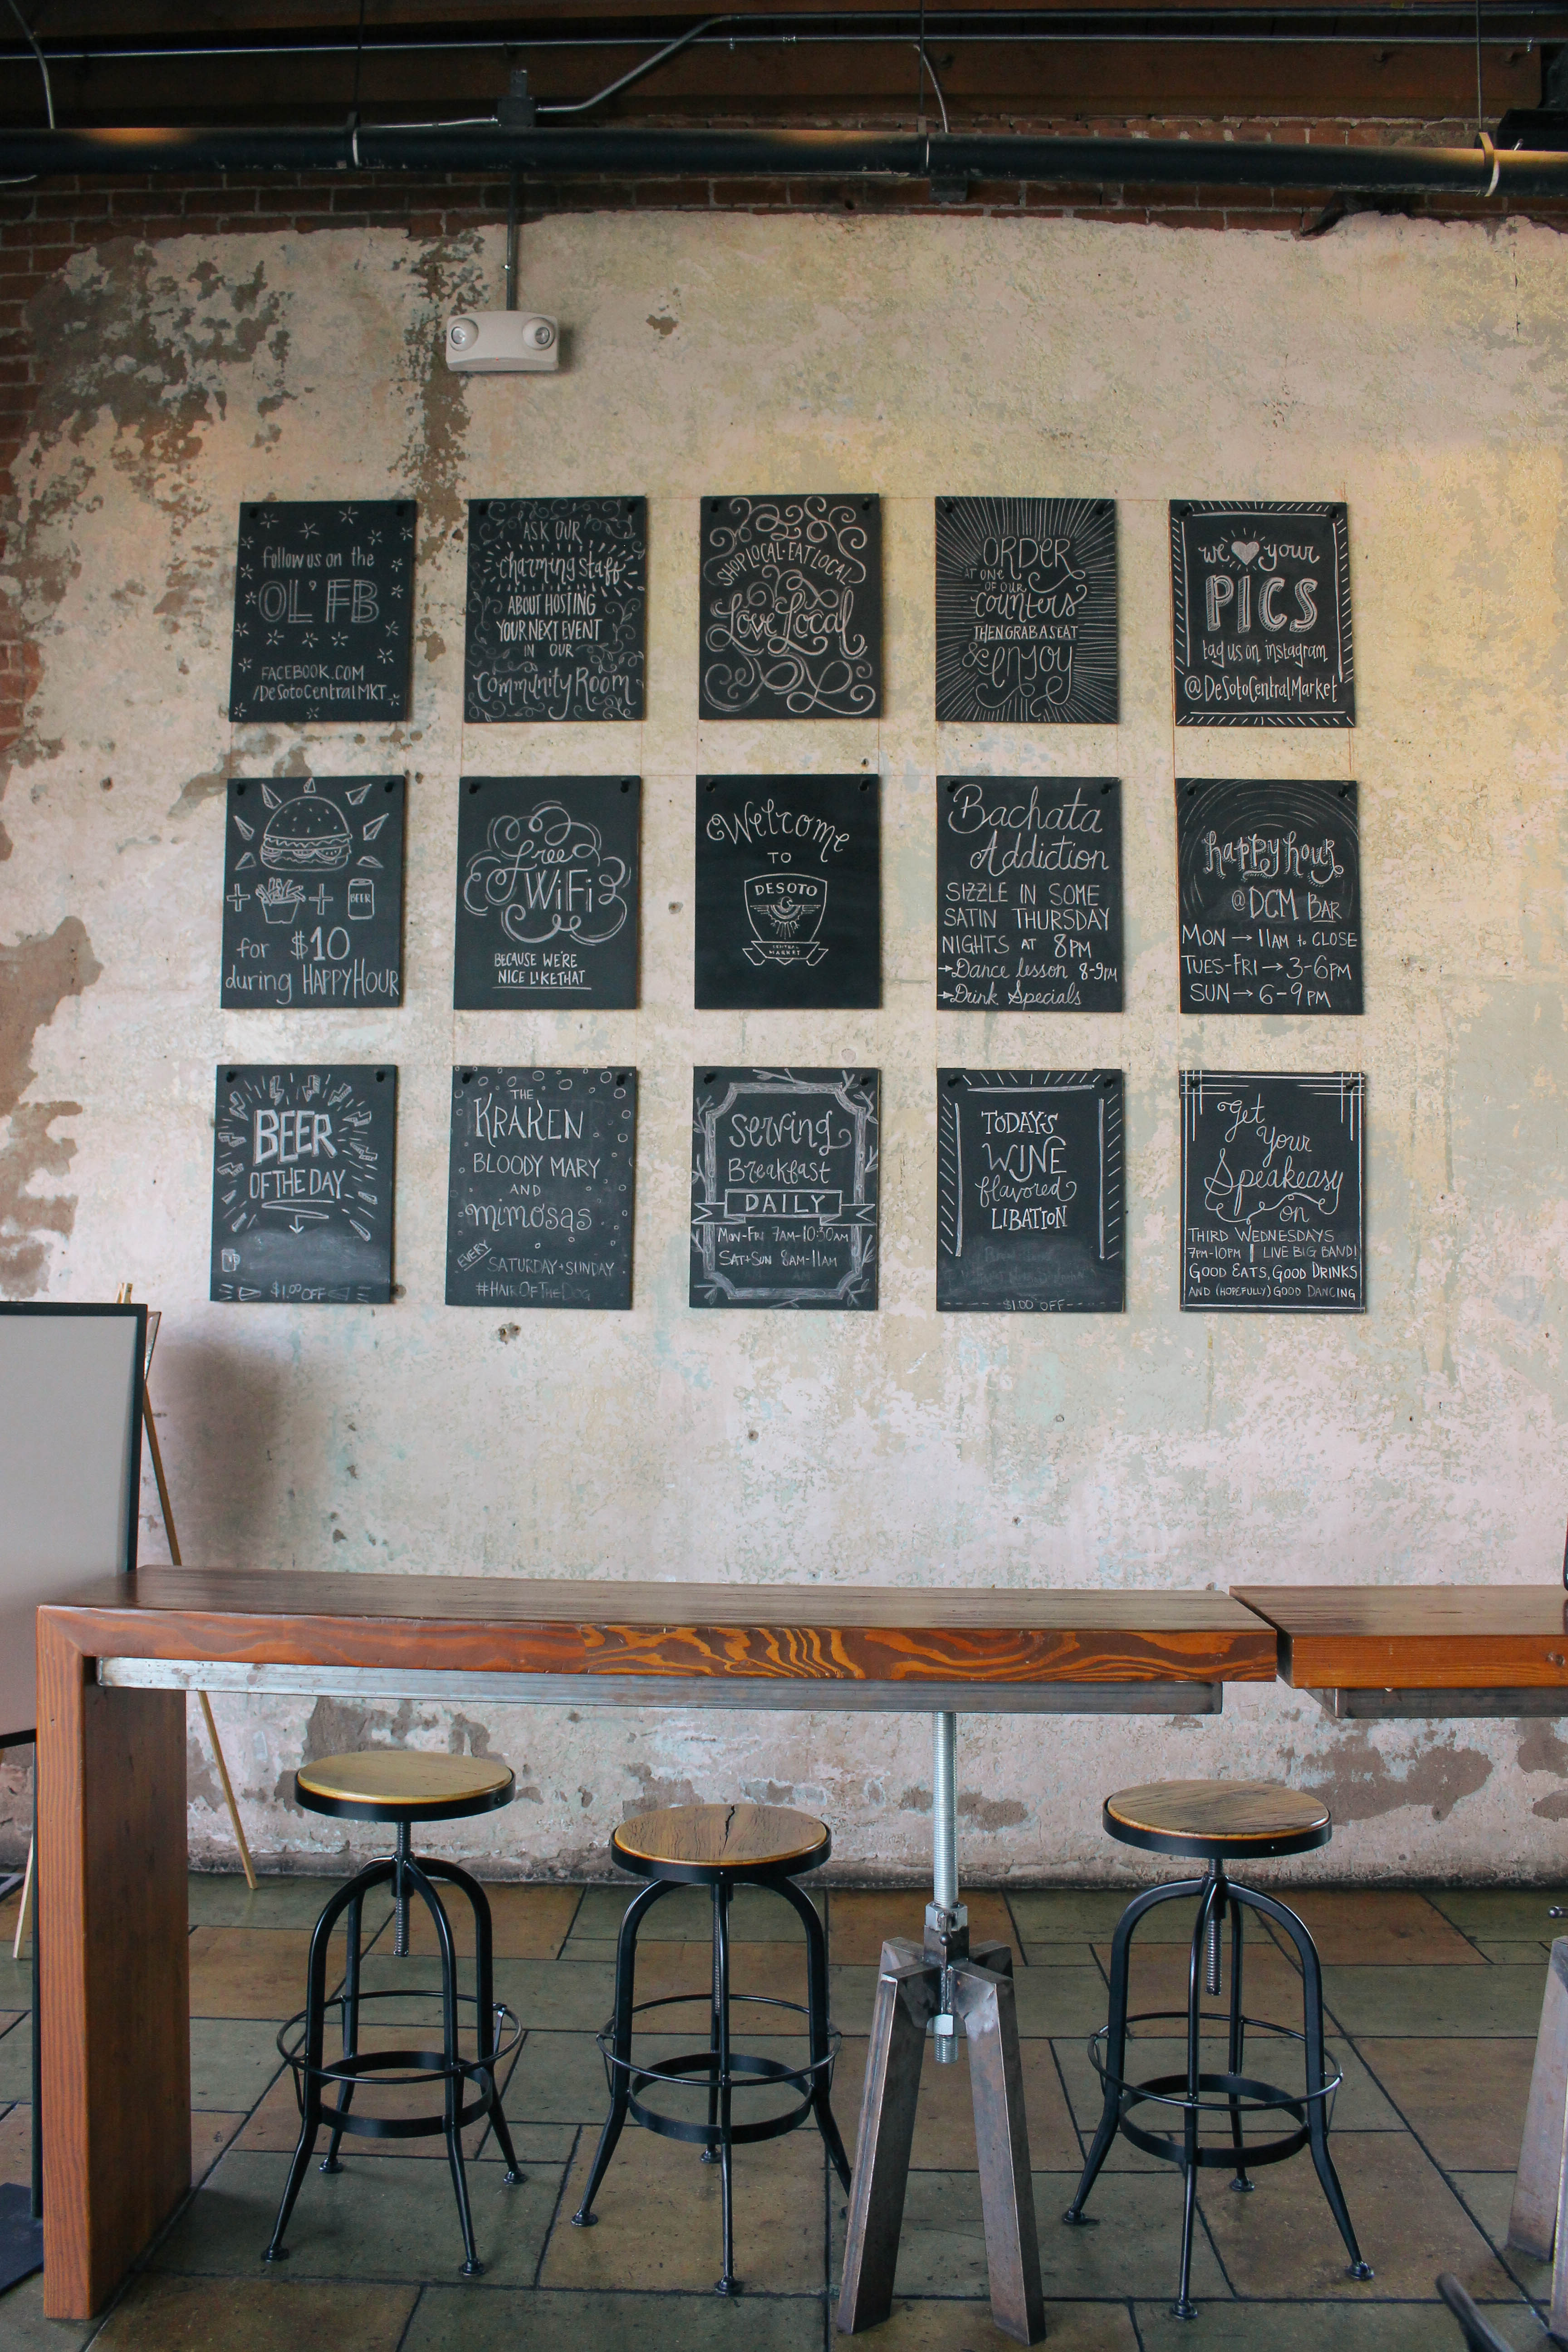 follow us on the
OL' FB
FACEBOOK.COM
/DeSotoCentralMKT
ASK OUR
charming staff
ABOUT HOSTING
YOUR NEXT EVENT
IN OUR
Community Room
SHOP LOCAL · EAT LOCAL
Love Local
ORDER
AT ONE
OF OUR
counters
THEN GRAB A SEAT
& enjoy
we your
PICS
tag us on instagram
@DeSotoCentralMarket
+ + BEER
for $10
during HAPPY HOUR
free
WiFi
BECAUSE WE'RE
NICE LIKE THAT
Welcome
TO
DESOTO
CENTRAL
MARKET
Bachata
Addiction
SIZZLE IN SOME
SATIN THURSDAY
NIGHTS AT 8PM
→Dance lesson 8-9PM
→Drink Specials
happy hour
@DCM BAR
MON → 11AM to CLOSE
TUES-FRI → 3-6PM
SUN → 6-9PM
BEER
OF THE DAY
$1.00 OFF
THE
KRAKEN
BLOODY MARY
AND
mimosas
EVERY
SATURDAY + SUNDAY
#HAIROFTHEDOG
Serving
Breakfast
DAILY
MON-FRI 7AM-10:30AM
SAT+SUN 8AM-11AM
TODAY'S
WINE
flavored
LIBATION
$1.00 OFF
Get
Your
Speakeasy
on
THIRD WEDNESDAYS
7PM-10PM | LIVE BIG BAND!
GOOD EATS, GOOD DRINKS
AND (HOPEFULLY) GOOD DANCING